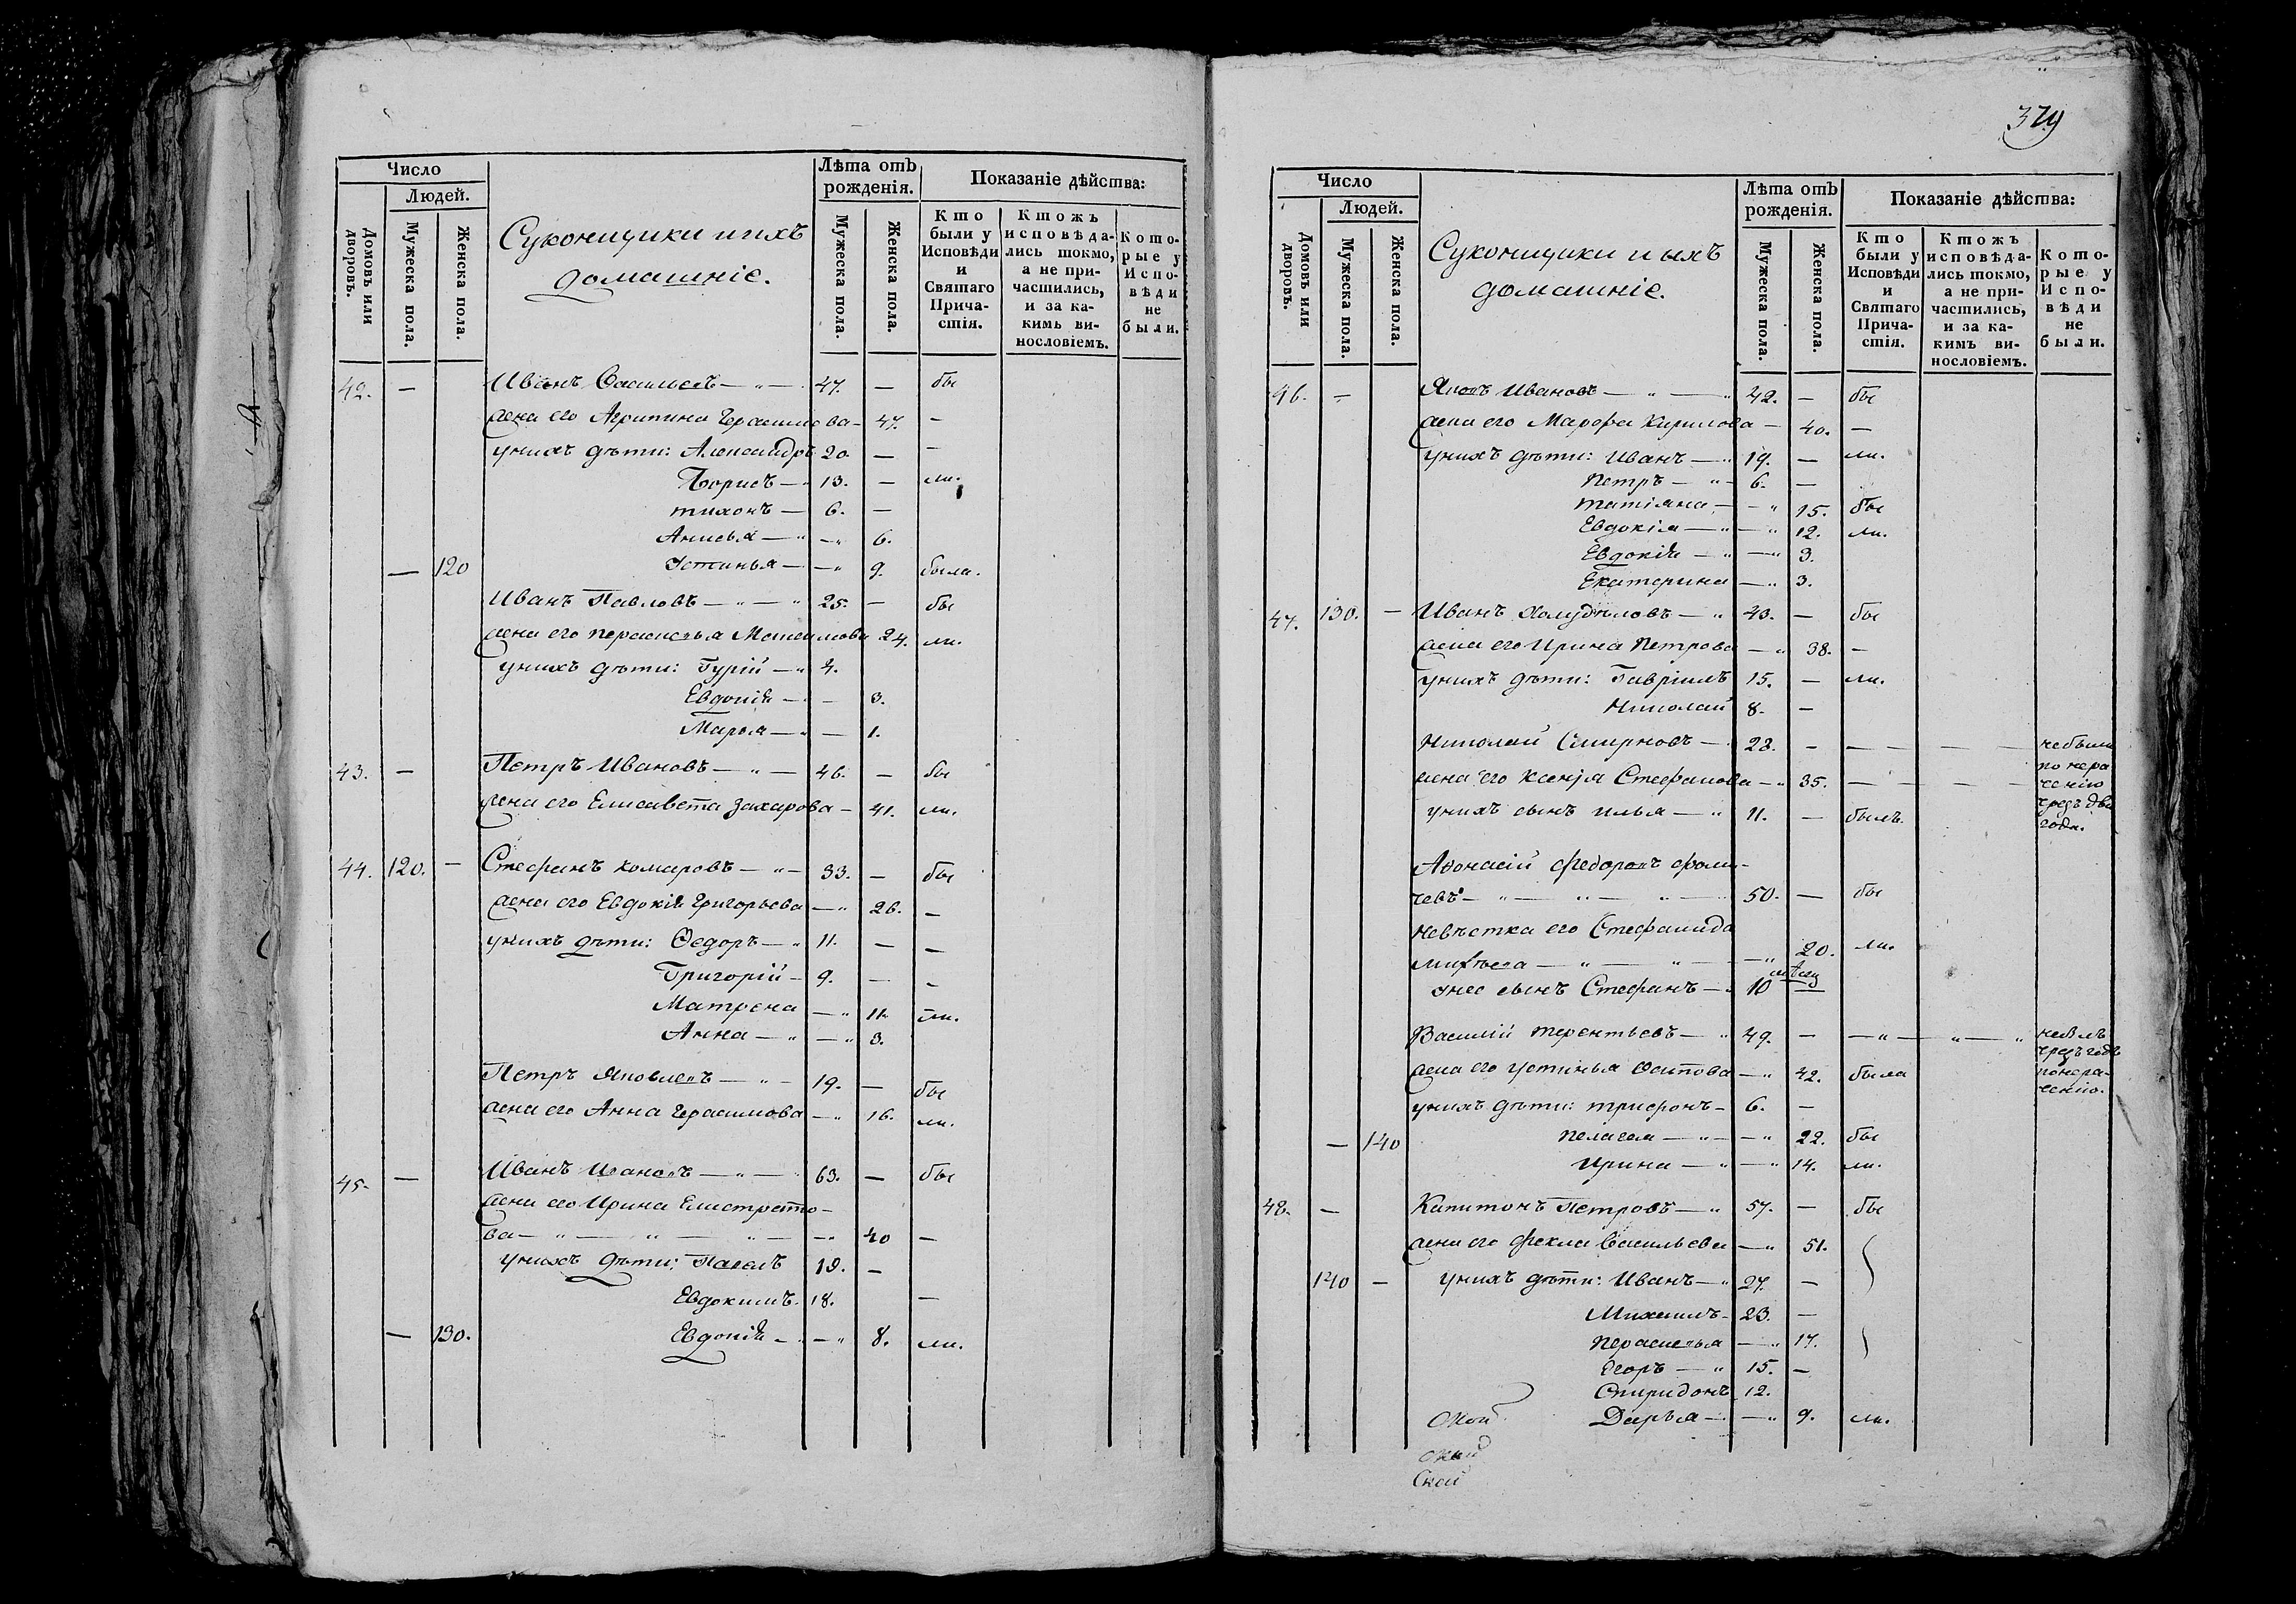 Число
Людей.
Домовъ или дворовъ.
Мужеска пола.
Женска пола.
Суконщики и ихъ
домашніе.
Лѣта отъ
рожденія.
Мужеска пола.
Женска пола.
Показаніе дѣйства:
Кто были у Исповѣди и Святаго Прича-стія.
Ктожъ исповѣда-лись токмо, а не при-частились, и за ка-кимъ ви-нословіемъ.
Кото-рые у Испо-вѣди не были.
42. — Иванъ Васильевъ — " — 47. — бы
жена его Агрипина Герасимова — 47. —
у нихъ дѣти: Александръ 20 — —
Борисъ — 13. — ли.
тихонъ — 6. —
Анисья — " — " 6.
— 120 Устинья — — " 9. была.
Иванъ Павловъ — " — " 25. — бы
жена его параскевья Максимова 24. ли.
у нихъ дѣти: Гурій — " 4.
Евдокія — — 3.
Марья — " — 1.
43. — Петръ Ивановъ — " — 46. — бы
жена его Елисавета Захарова — 41. ли.
44. 120. — Стефанъ комаровъ — " — 33. — бы
жена его Евдокія Григорьева — " 26. —
у нихъ дѣти: Ѳедоръ — " 11. — —
Григорій — 9. — —
Матрена — " 11. — ли.
Анна — " — " 3.
Петръ Яковлевъ — " — 19. — бы
жена его Анна Герасимова — " 16. ли.
45. — Иванъ Ивановъ — " — 63. — бы
жена его Ирина Елистрато-
ва — " — " — " — — " 40 —
у нихъ дѣти: Павелъ 19. —
Евдокимъ. 18. —
— 130. Евдокія — — " 8. ли.
379
Число
Людей.
Домовъ или дворовъ.
Мужеска пола.
Женска пола.
Суконщики и ихъ
домашніе.
Лѣта отъ
рожденія.
Мужеска пола.
Женска пола.
Показаніе дѣйства:
Кто были у Исповѣди и Святаго Прича-стія.
Ктожъ исповѣда-лись токмо, а не при-частились, и за ка-кимъ ви-нословіемъ.
Кото-рые у Испо-вѣди не были.
46. — Яковъ Ивановъ — " — " 42. — бы
жена его Марфа Кирилова — 40. —
у нихъ дѣти: Иванъ — " 19. — ли.
Петръ — " — 6. —
татіяна — — " 15. бы
Евдокія — " — " 12. ли.
Евдокія — " — " 3.
Екатерина — " 3.
47. 130. — Иванъ — " 43. — бы
жена его Ирина Петрова — " 38. —
у нихъ дѣти: Гавріилъ 15. — ли.
Николай 8. —
Николай Смирновъ — 23. — — — — — не были
по нера
жена его Ксенія Стефанова — " 35. — — — — ченію
чрезъ два
у нихъ сынъ илья — " 11. — былъ. года.
Афонасій федоровъ фоми-
чевъ — " — " — " — 50. — бы
невѣстка его Стефанида
— " — " — — " 20. ли.
мѣсяц
у нее сынъ Стефанъ — " 10 —
Василій терентьевъ — " 49. — — " — " — " не былъ
чрезъ годъ
жена его устинья Осипова — " 42. была по нера-
ченію.
у нихъ дѣти: трифонъ — 6. —
— 140 пелагея — " — — " 22. бы
Ирина — " — " 14. ли.
48. — Капитонъ Петровъ — " 57. — бы
жена его фекла Васильева — " 51.
140 — у нихъ дѣти: Иванъ — " 27. —
Михаилъ — 23. —
параскевья — " 17.
Егоръ — " 15. —
Спиридонъ 12.
Дарья — — " 9. ли.